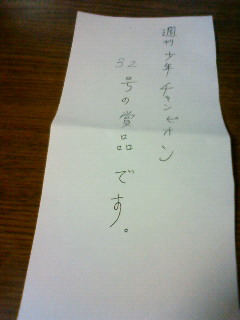 週刊少年チャンピオン
32号の賞品です。